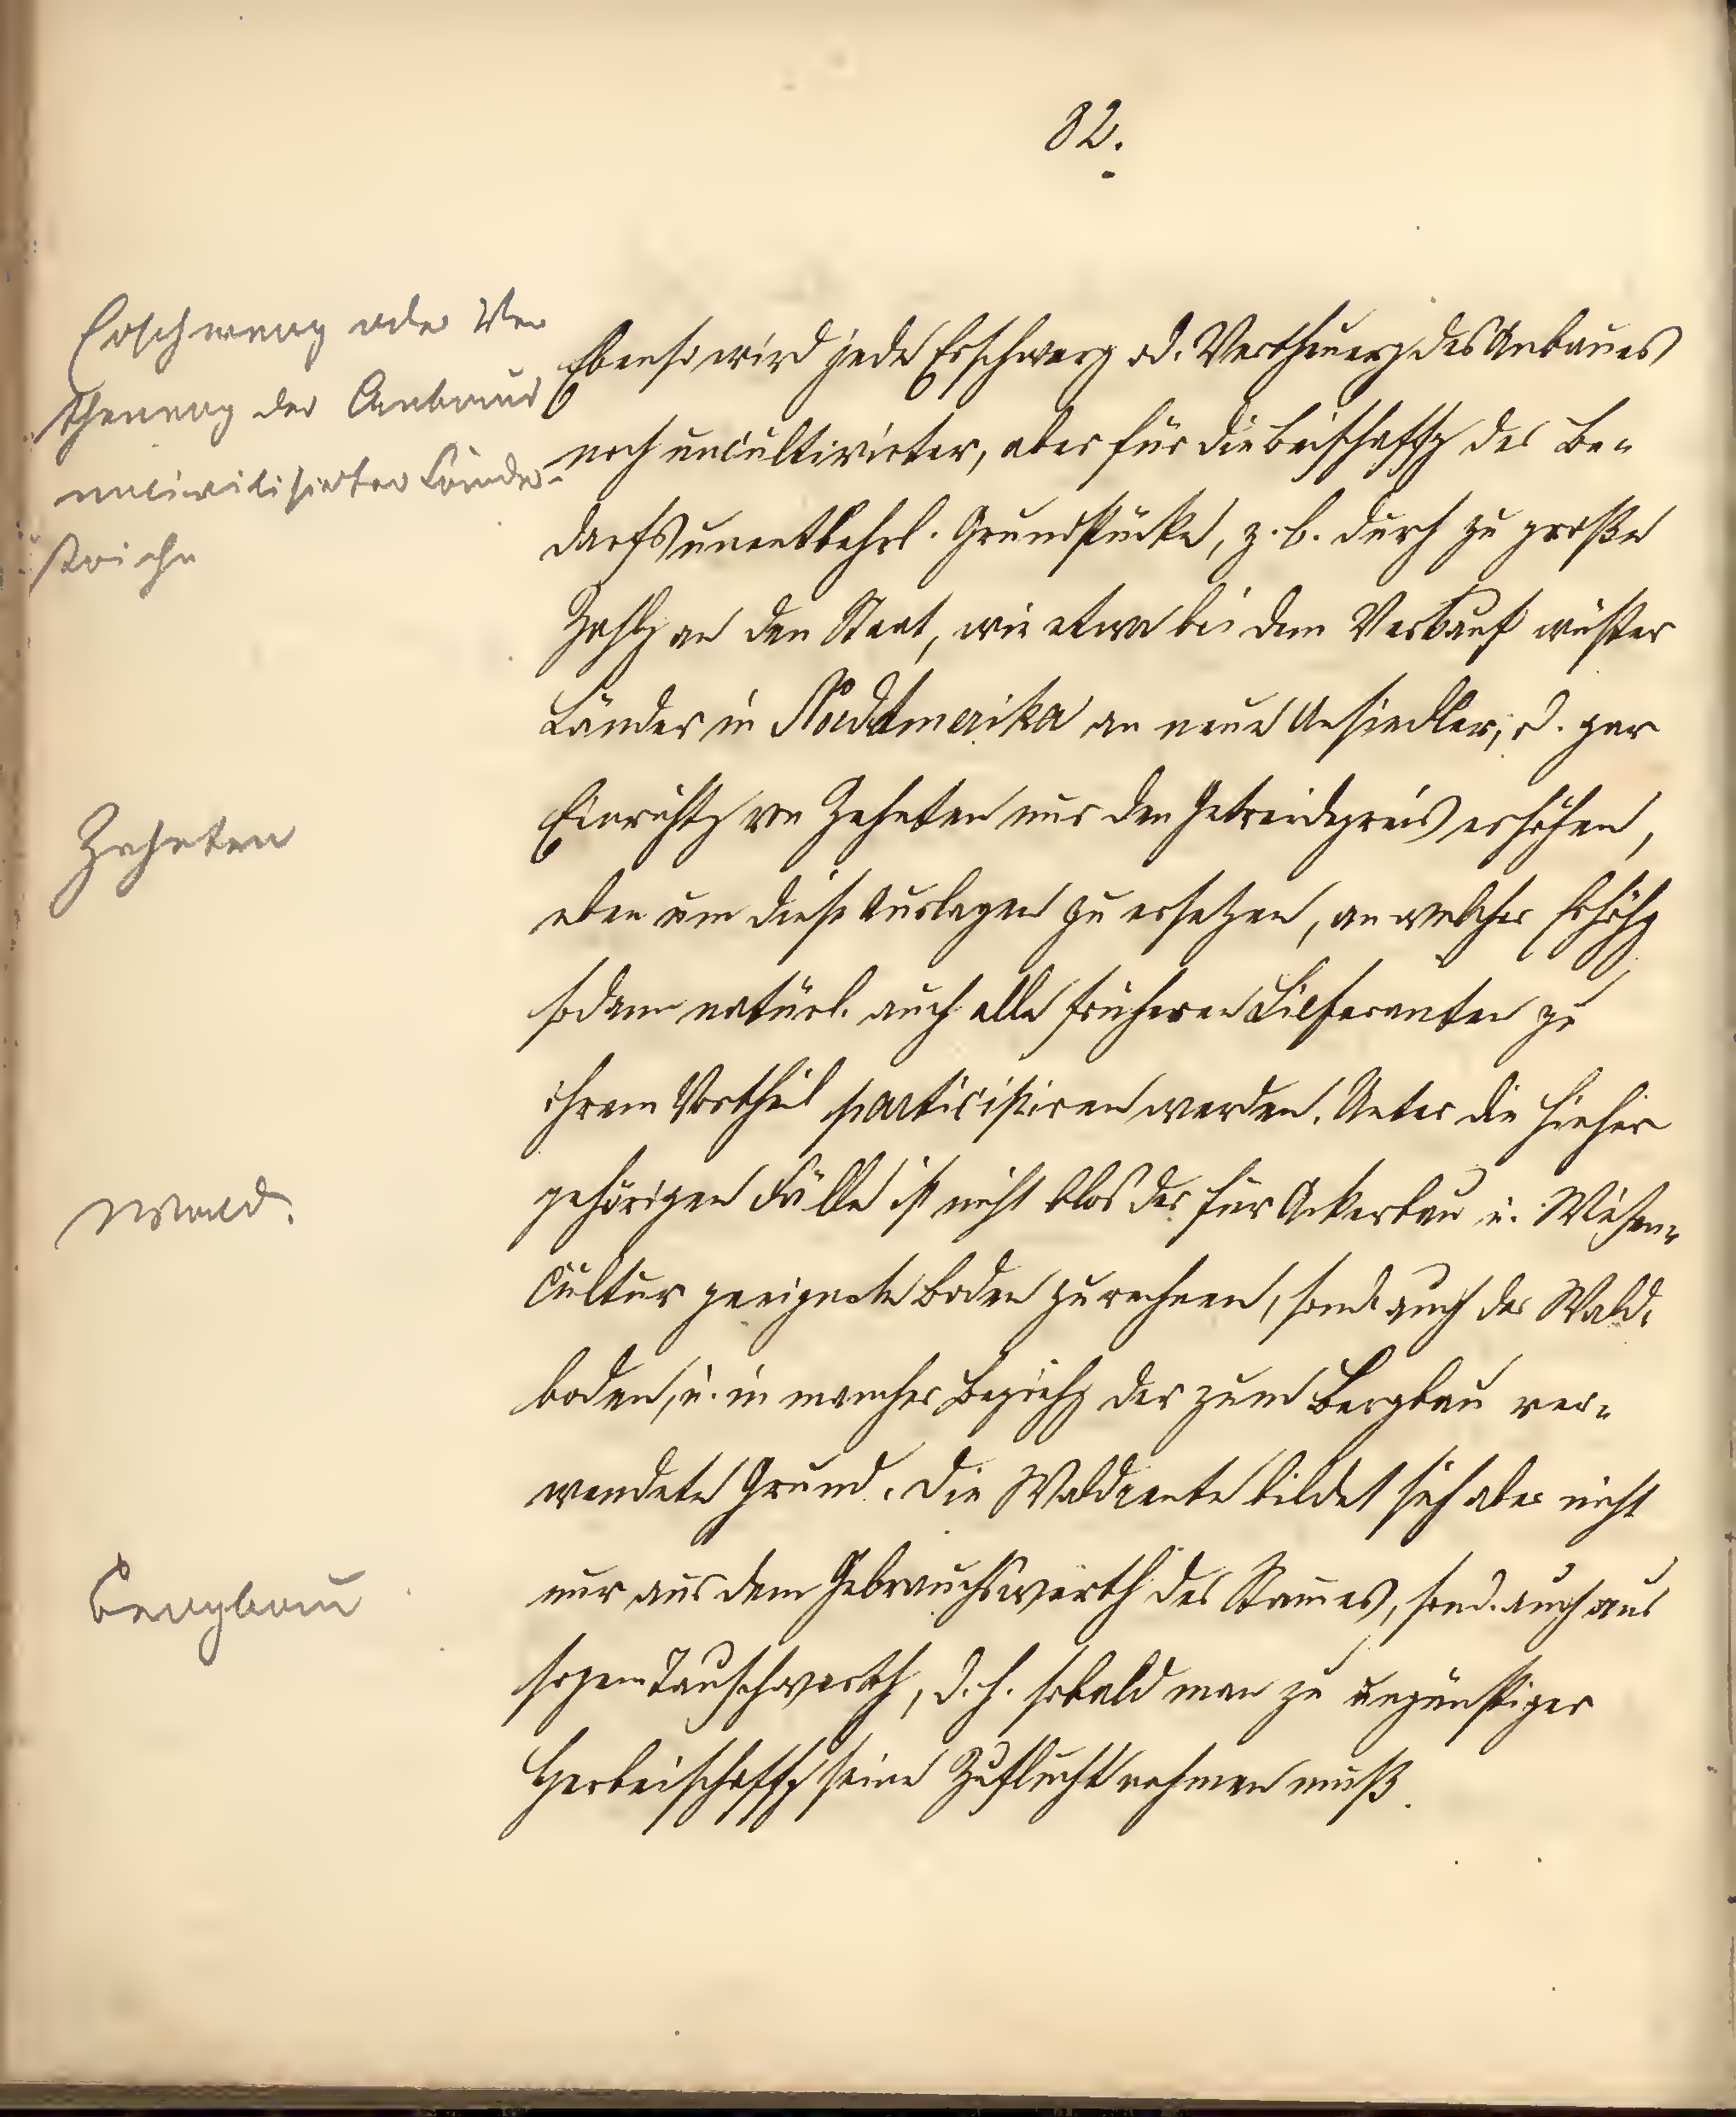 82.
Erschwerung oder Ver
theuerung des Anbaues
uncivilisirter Länder-
striche
Ebenso wird jede Erschwerg od. Vertheuerg des Anbaues
noch uncultivirter, aber für die Beischaffg des Be-
darfs unentbehrl. Grundstücke, z. b. durch zu große
Zahlg an den Staat, wie etwa bei dem Verkauf wüster
Länder in Nordamerika an neue Ansiedler, od. gar
Zehnten
Einrichtg von Zehnten nur den Getreidepreis erhöhen,
eben um diese Auslagen zu ersetzen, an welcher Erhöhg
sodann natürl. auch alle früheren Lieferanten zu
ihrem Vortheil participiren werden. Unter die hieher
Wald.
gehörigen Fälle ist nicht blos der für Ackerbau u. Wiesen-
Cultur geeignete Boden zu rechnen, sond. auch der Wald-
boden, u. in mancher Beziehg der zum Bergbau ver-
wendete Grund. Die Waldrente bildet sich aber nicht
Bergbau
nur aus dem Gebrauchswerth des Stames, sond. auch aus
Tauschwerth, d. h. sobald man zu ungünstiger
Herbeischaffg seine Zuflucht nehmen muß.